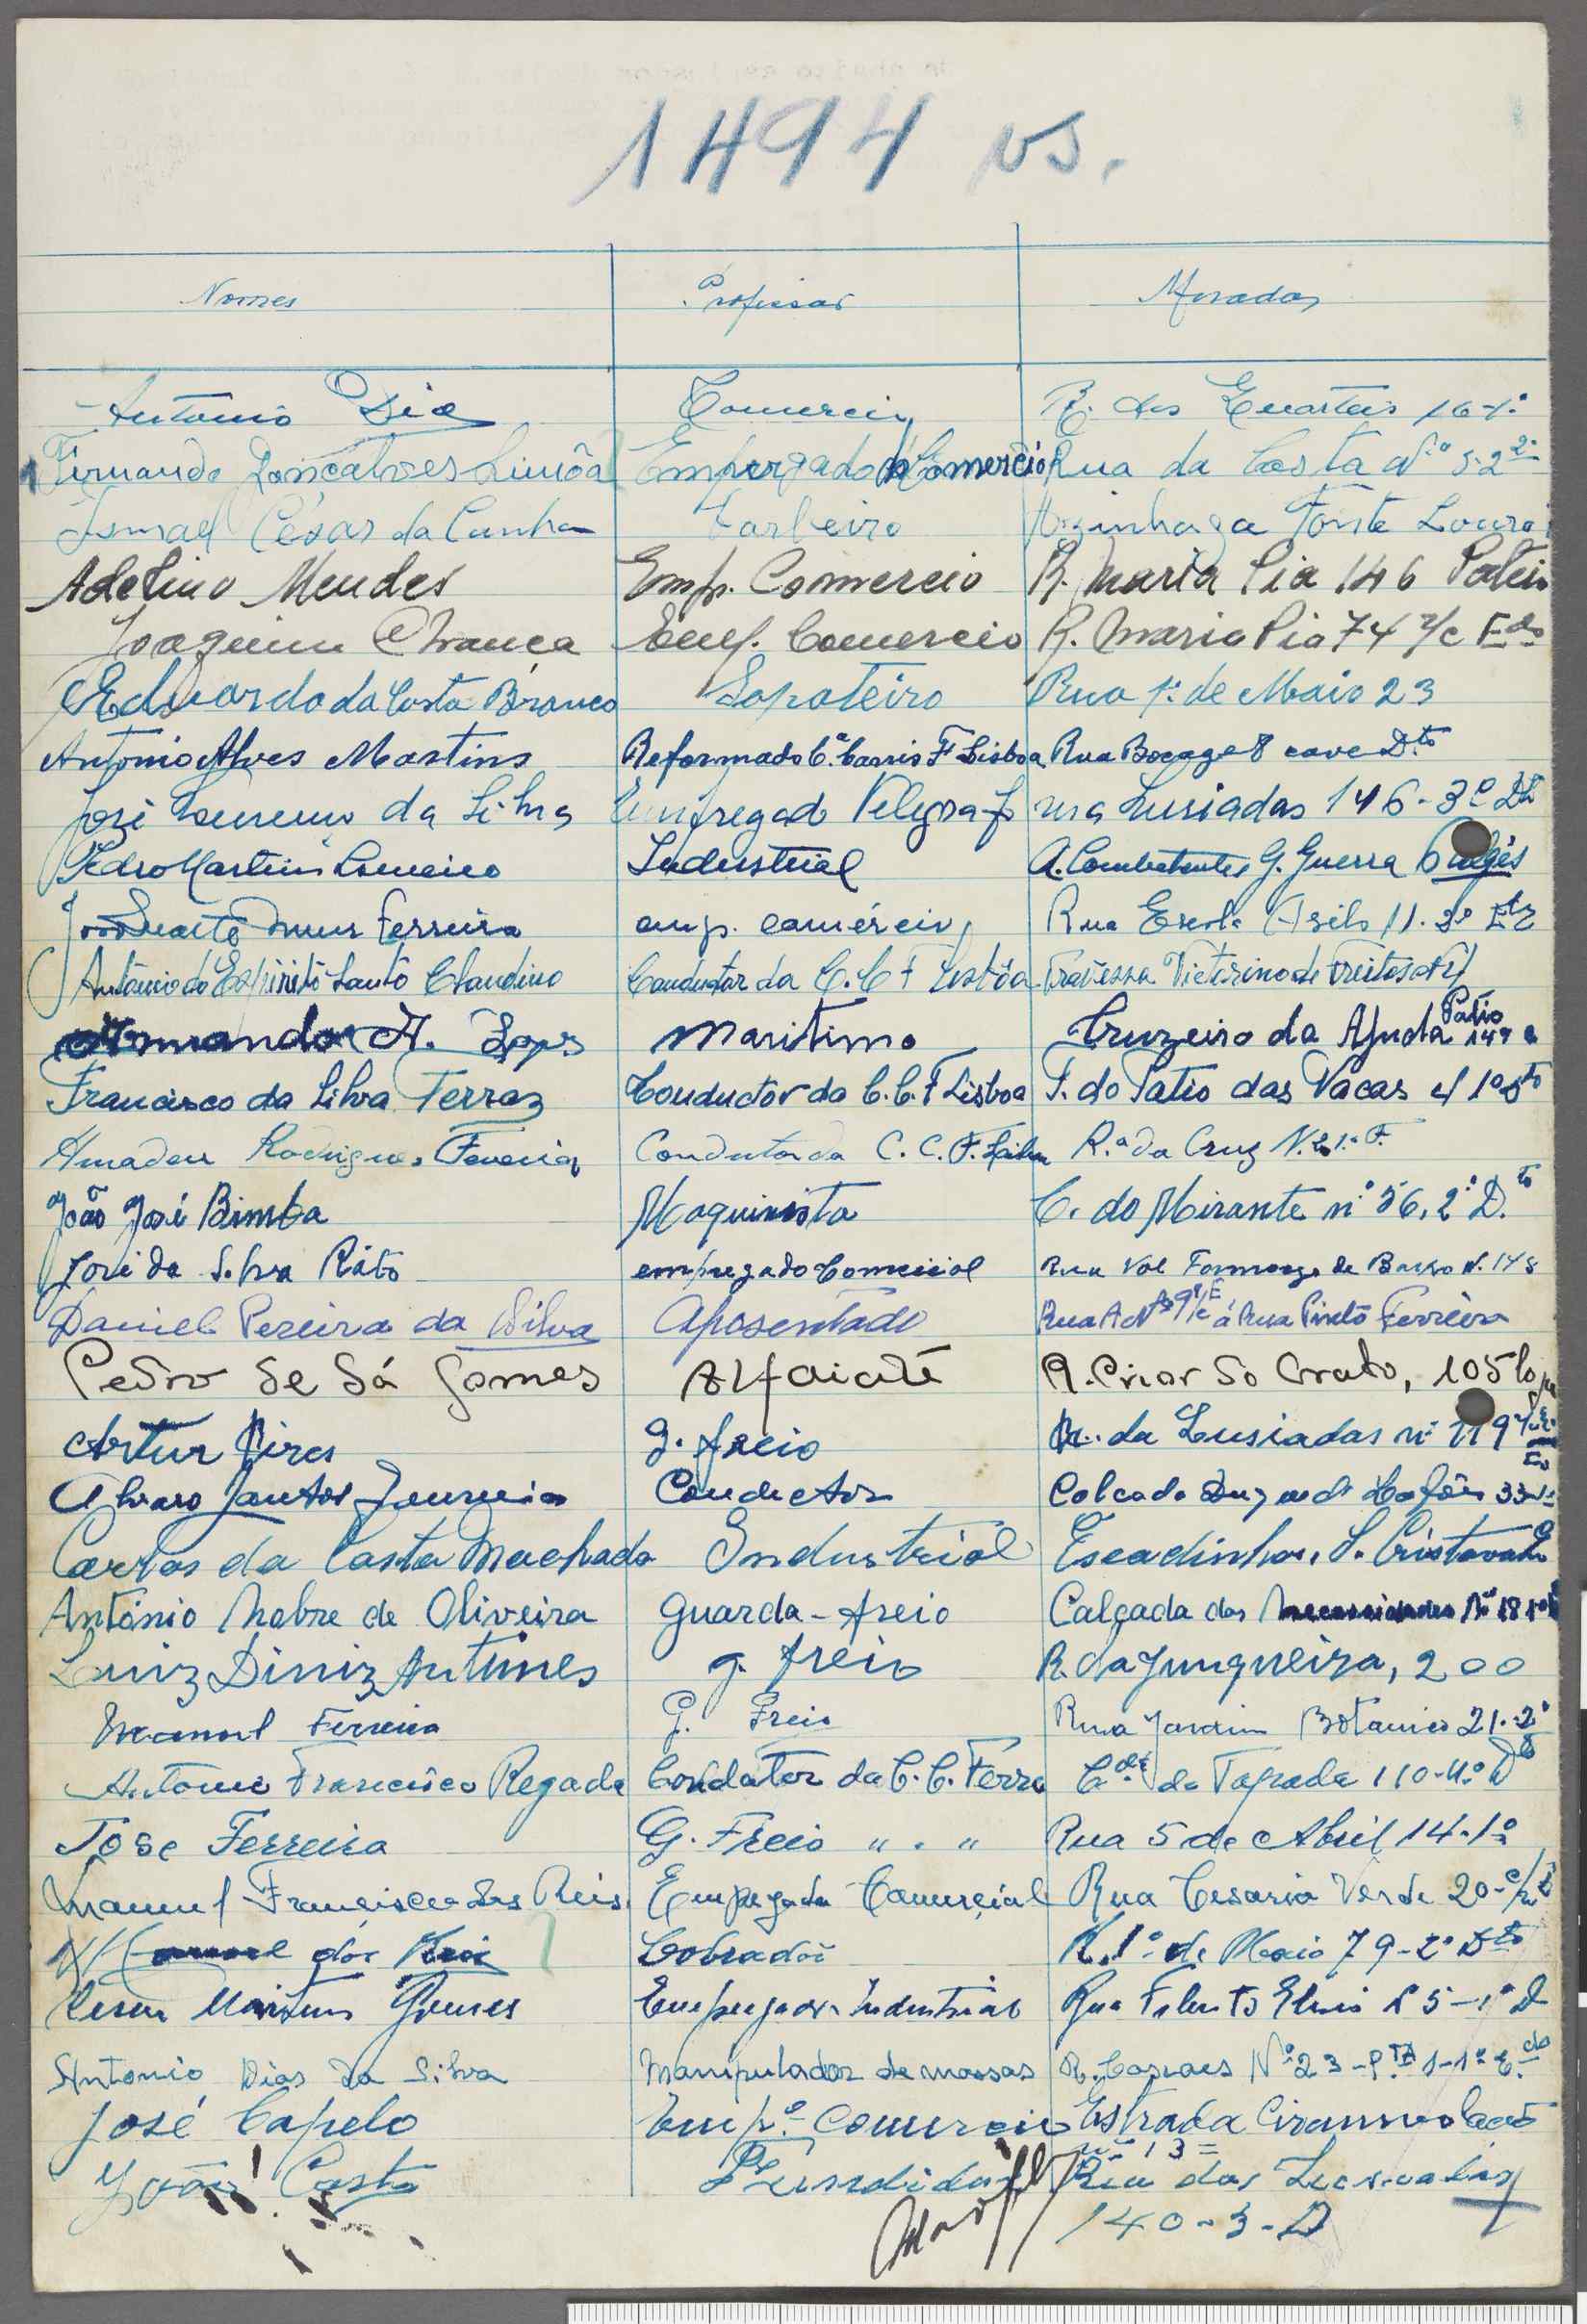 1494 vs.
Nomes Profissões Moradas
António Dia Comercio R. dos Quarteis 16-1º
Fernando Gonçalves Limôa Empregado d Comercio Rua da Costa Nº 5-2º
Ismael César da Cunha Barbeiro Azinhaga Fonte Loura
Adelino Mendes Emp. Comercio R. Maria Pia 146 Pateo
Joaquim Chança Emp. Comercio R. Maria Pia 74 r/c Edo
Eduardo da Costa Branco Sapateiro Rua 1º de Maio 23
Antonio Alves Martins Reformado C.ª Carris F Lisboa Rua Bocage 8 cave Dto
José Lourenço da Silva Empregad Telegraf rua Lusiadas 146-3º Dt
Pedro Martins Industrial A. Combatentes G. Guerra 6 Algés
João Duarte Ferreira emp. comércio Rua Escola Asilo 11-3º
António do Espirito Santo Claudino Condutor da C.C F Lisbôa Travessa Victorino de Freitas
Armando A. Lopes Maritimo Cruzeiro da Ajuda Patio 149
Francisco da Silva Terraz Conductor da C.C.F Lisboa T. do Patio das Vacas 1º
Amadeu Rodrigues Ferreira Condutor da C.C.F. R.ª da Cruz
João José Bimba Maquinista C. do Mirante nº 56, 2º D.to
José da Silva Rato empregado Comercial Rua Vale Formoso de Baixo N. 148
Daniel Pereira da Silva Aposentado Rua A á Rua Pinto Ferreira
Pedro de Sá Gomes Alfaiate R. Prior do Crato, 105 loja
Artur Pires g. freio R. da Lusiadas nº 119
Alvaro Santos Conductor Calcada Duque de Lafões 33
Carlos da Costa Machado Industrial Escadinhas S. Cristovam
António Nobre de Oliveira Guarda-freio Calçada das Necessidades Nº 18 1º
Luiz Diniz Antunes g. freio R. da Junqueira, 200
Manuel Ferreira G. Freio Rua Jardim Botanico 21-2º
Antonio Francisco Regada Condator da C.C. Ferro C. da Tapada 110-4º D
José Ferreira G. Freio " . " Rua 5 de Abril 14-1º
Manuel Francisco dos Reis. Empregado Comercial Rua Cesario Verde 20-r/c
Manuel dos Reis Cobrador R. 1º de Maio 79-2º Dto
Martins Gomes Empregado Industrial Rua Filinto Elisio 5-1º D
Antonio Dias da Silva Manipulador de massas R. Cascaes Nº 23-P.TA 1-1º E.do
José Capelo Emp.º Comercio Estrada Circunvolação
nº 13=
João Costa Rua das
140-3-D